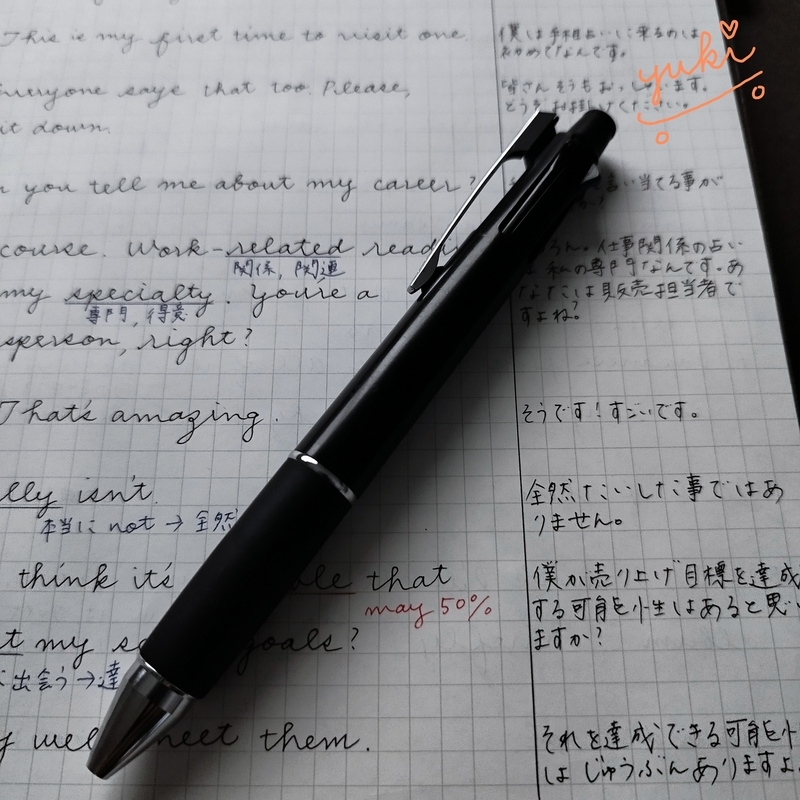 This is my first time to visit one.
僕は手相占いに来るのは
初めてなんです。
Everyone says that too. Please,
皆さんそうおっしゃいます。
yuki
it down.
どうぞお掛けください。
you tell me about my career?
言い当てる事が
course. Work-related
仕事関係の占い
関係, 関連
私の専門なんです。あ
my specialty. You're a
なたは販売担当者で
専門, 得意
すよね?
person, right?
That's amazing.
そうです!すごいです。
isn't.
全然たいした事ではあ
本当に not → 全然
りません。
think it's
that
僕が売り上げ目標を達成
may 50%
する可能性はあると思い
my
goals?
ますか?
出会う→達
them.
それを達成できる可能性
はじゅうぶんありますよ。